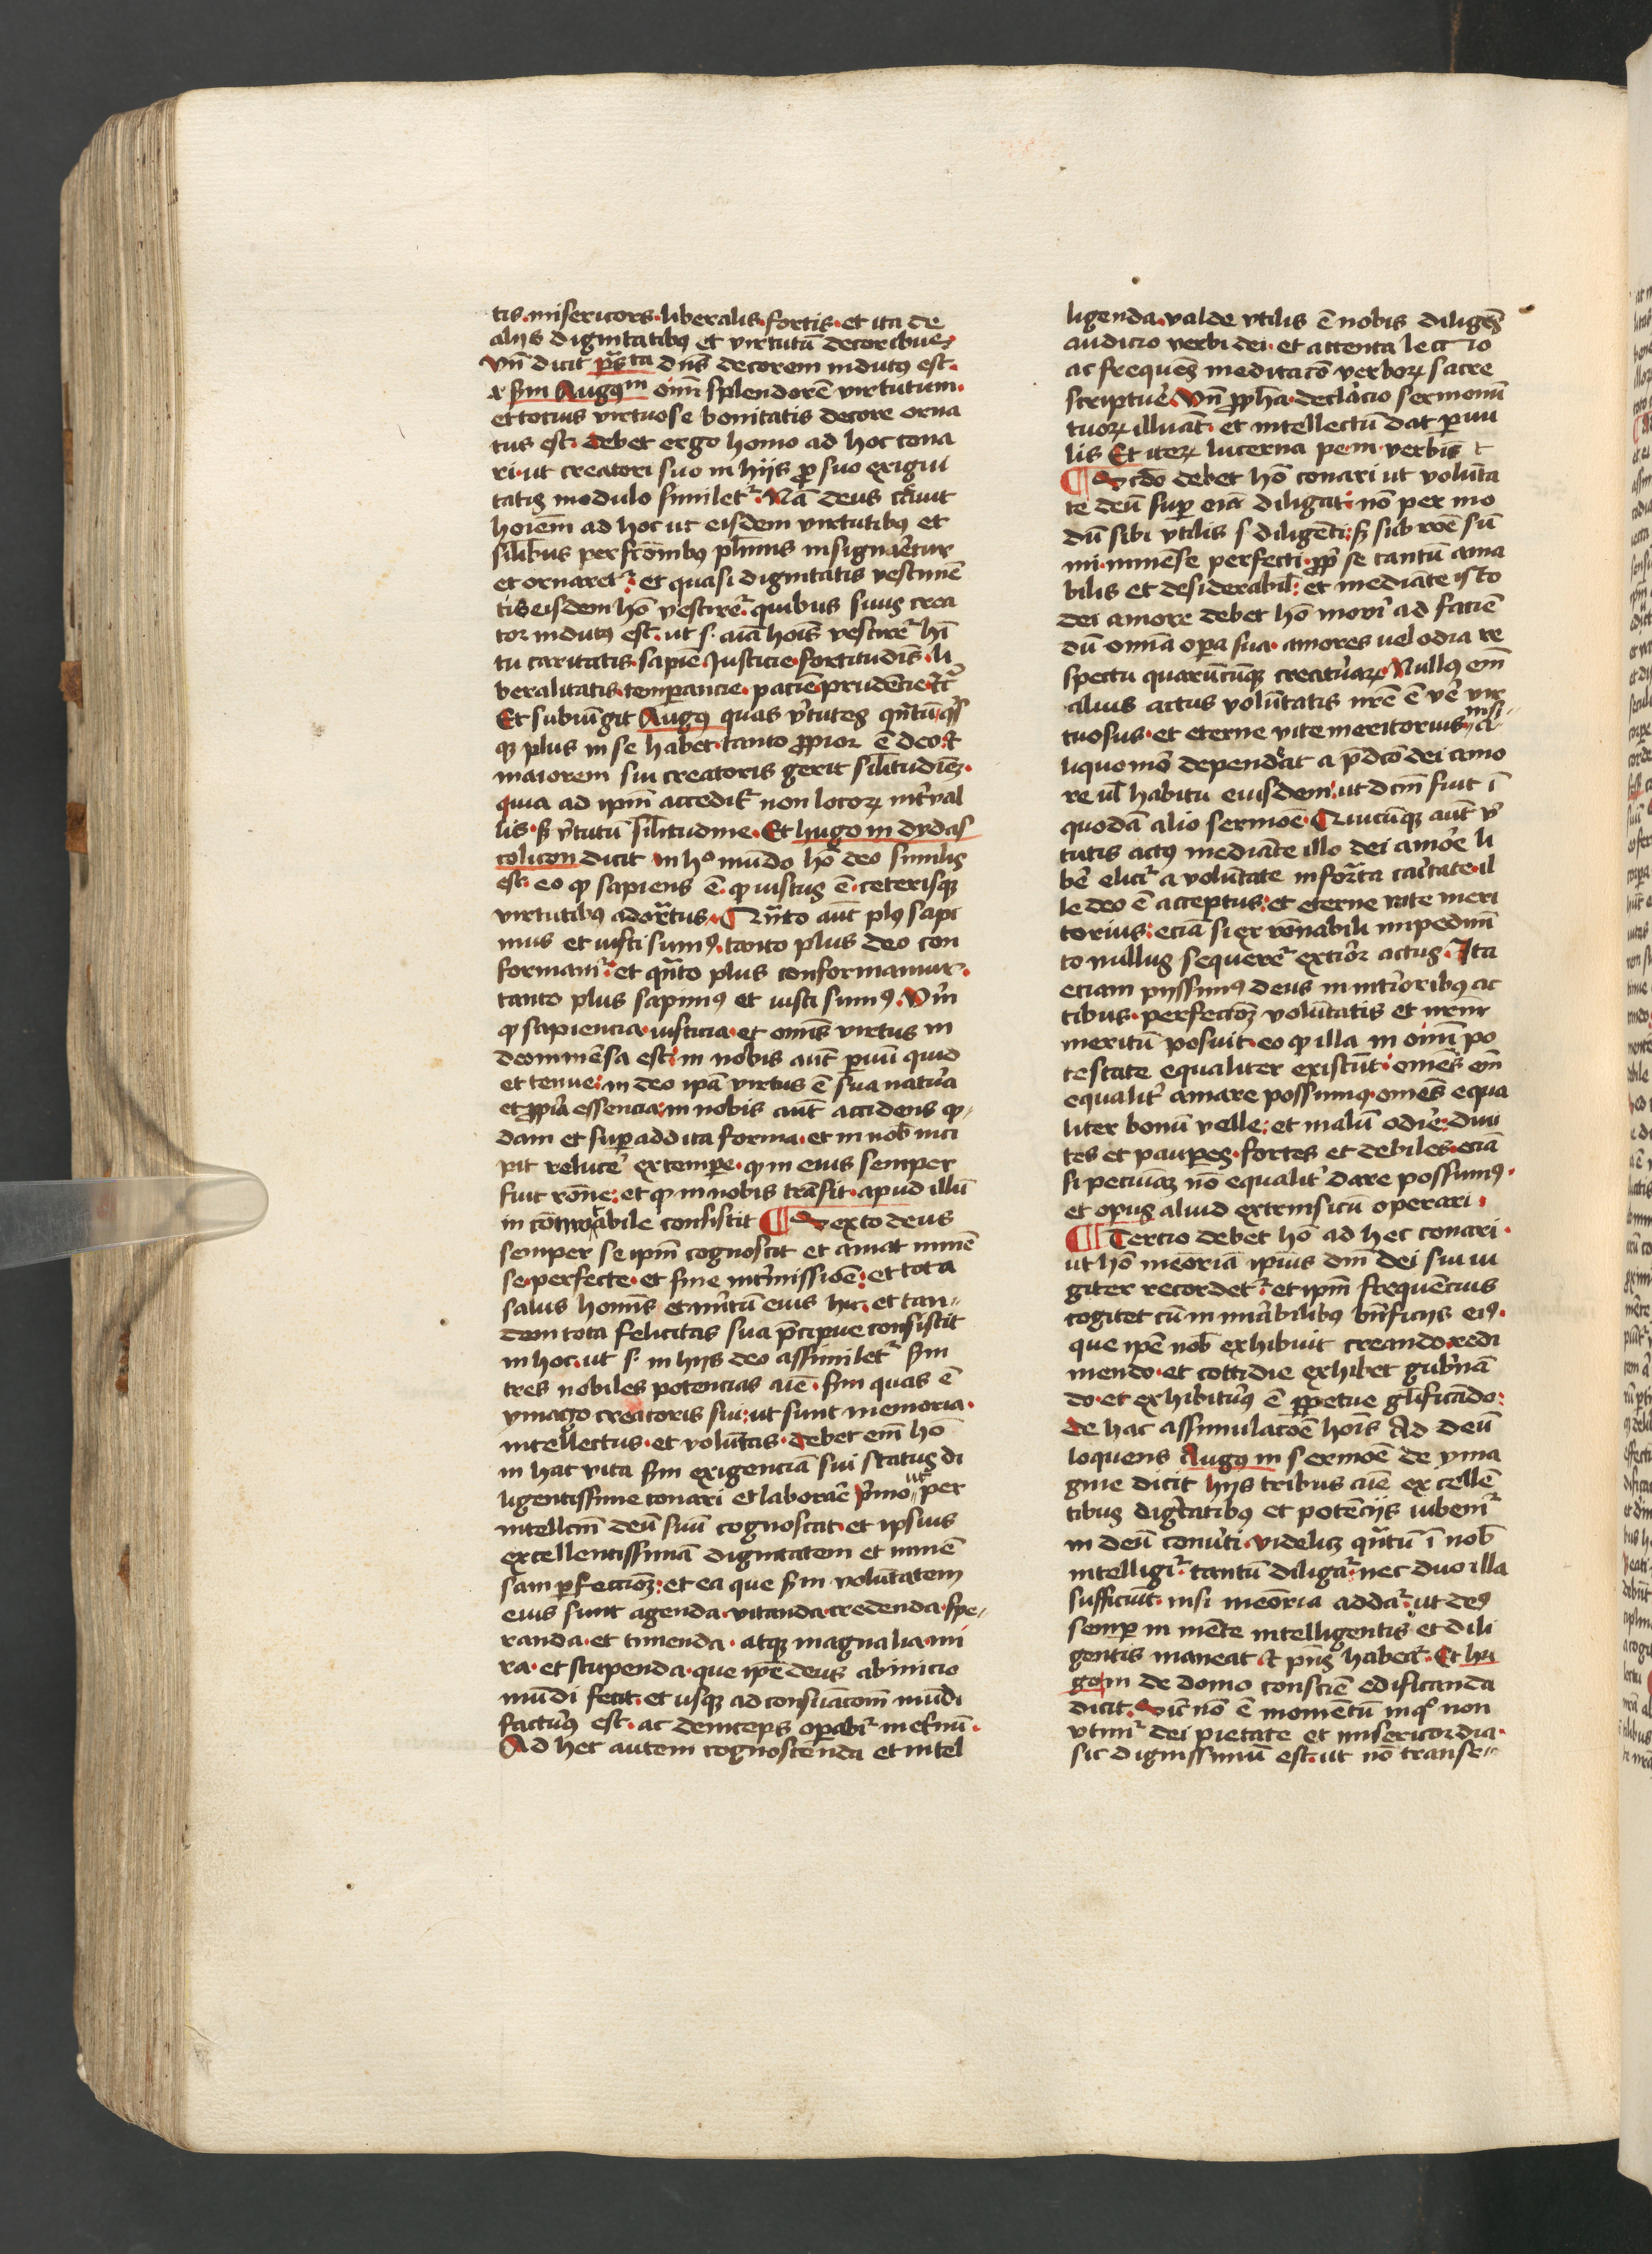 tis · misericors · liberalis · fortis · et ita de
alijs dignitatibꝰ et virtutū decoribus ·
vn̄ dicit p̄sᵗᵃ dn̄s decorem indutꝰ est ·
scd̄m Augꝰᵐ om̄i splendorē virtutum ·
et totius virtuose bonitatis decore orna
tus est · debet ergo homo ad hoc cona
ri · ut creatori suo in hijs ꝓ suo exigui
tatis modulo similetᷣ · Nā deus c̄auit
hoīem ad hoc ut eisdem virtutibꝰ et
silībus perfcōnibꝰ plēnius insignir̄etur
et ornaretᷣ : et quasi dignitatis vestimē
tis eisdem hō vestiretᷣ · quibus suus crea
tor indutꝰ est · ut s · aīa hoīs vestiretᷣ hī
tu caritatis · sapiē Justicie · fortitudīs · li
beralitatis · temperancie · paciē prudēcie · ⁊cᷣ
Et subiūgit Augꝰ quas v̓tutes qn̄tū qͥs
qꝫ plus in se habet · tanto ꝓpior ē deo · ⁊
maiorem sui creatoris gerit silītudīeꝫ ·
quia ad ipm̄ accedit᷒ non locoꝝ int̓ual
lis · sꝫ v̓tutū silītudine · Et hugo in dydas
colicon dicit in hº mūdo hō deo similis
est · eo ꝙ sapiens ē · ꝙ iustus ē · ceterisqꝫ
virtutibꝰ adornatus · Quāto aūt plꝰ sapi
mus et iusti sumꝰ · tanto plus deo con
formamᷣ · et qn̄to plus conformamur ·
tanto plus sapimꝰ et iusti sumꝰ · Vm̄
ꝙ sapiencia · iusticia · et omīs virtus in
deo īmēsa est : in nobis aūt ꝑuū quid
et tenue : in deo ipā virtus ē sua natura
et ꝓpria essencia : in nobis aūt accidens q̄
dam et superaddita forma · et in nob̄ inci
pit reluce᷒ ex tempe · ꝙ in eius semper
fuit rōne : et ꝙ in nobis trāsit · apud illū
in cōmutabile consistit ¶ Sexto deus
semper se ipm̄ cognoscit et amat immē
se · perfecte · et sine int̓missiōe : et tota
salus hominis et m̓itū eius hic · et tan-
dem tota felicitas sua p̄cipue consistit
in hoc · ut s · in hijs deo assimiletᷣ scd̄m
tres nobiles potencias aīe · scd̄m quas ē
ymago creatoris sui : ut sunt memoria ·
intellectus · et volūtas · debet em̄ hō
in hac vita scd̄m exigenciā sui status di
ligentissime conari et laborar̄e p̓mo ut per
intellcm̄ deū suū cognoscat · et ipsius
excellentissimā dignitatem et immē
sam ꝑfeccioꝫ : et ea que scd̄m volūtatem
eius sunt agenda · vitanda · credenda · spe-
randa · et timenda · atqꝫ magnalia · mi
ra · et stupenda · que ip̄e deus ab inicio
mūdi fecit · et usqꝫ ad consūacōem mūdi
facturꝰ est · ac deinceps operabitᷣ in et̓nū ·
Ad hec autem cognoscenda et intel
ligenda · valde vtilis ē nobis diligēs
audicio verbi dei · et attenta lectio
ac frequens meditacō verboꝝ sacre
scriptur̄e Vn̄ ꝓph̄a · declaracio sermonū
tuoꝝ illuīat · et intellectū dat ꝑuu
lis Et iteꝝ lucerna pe · m · verbū t
¶ Scdo debet hō conari ut volūta
te deū super om̄ia diligat · nō per mo
dū sibi vtilis s · diligēti : sꝫ sub rōe sū
mi · immēse perfecti · ꝓpt̓ se tantū ama
bilis et desiderabilis : et mediāte isto
dei amore debet hō moveri ad faciē
dū omīa opera sua · amores uel odia re
spectu quarūcūqꝫ creaturaꝝ · Nullꝰ em̄
alius actus volūtatis nr̄e ē ve᷒ vir
tuosus · et eterne vite meritorius nisi a-
liquomō dependeat a p̄dcō dei amo
re vl̄ habitu eiusdem · ut dcm̄ fuit ī
quodā alio sermōe · Quicūqꝫ aūt v̓
tutis actꝰ mediāte illo dei amore li
be᷒ elicitᷣ a volūtate informata caritate · il
le deo ē acceptus : et eterne vite meri
torius : eciā si ex rōnabili impedimē
to nullus sequeretᷣ exterior actus · Ita
eciam pijssimꝰ deus in interioribꝰ ac
tibus · perfeccioꝫ volūtatis et nr̄m
meritū posuit · eo ꝙ illa in om̄i po
testate equaliter existūt : om̄es em̄
equalit᷒ amare possumꝰ · om̄es equa
liter bonū velle : et malū odir̄e : diui
tes et pauperes · fortes et debiles · eciā
si pecuīaꝫ nō equalit᷒ dare possumꝰ ·
et opus aliud extrinsicū operari ·
¶ Tercio debet hō ad hec conari ·
ut hō meōriā ipius dnī dei sui iu
giter recordetᷣ : et ipm̄ frequēcius
cogitet cū in mirabilibus bn̄ficijs eiꝰ ·
que ip̄e nob̄ exhibuit creando · redi
mendo · et cottidie exhibet gub̓nā
do · et exhibiturꝰ ē ꝑpetue glīficādo :
de hac assimulacōe hoīs Ad deū
loquens Augꝰ in sermōe de yma
gine dicit hijs tribus aīe excellē
tibus dignitatibꝰ et potēcijs iubemᷣ
in deū conuerti · videlicꝫ qn̄tū ī nob̄
intelligitᷣ · tantū diligatᷣ · nec duo illa
sufficiūt · nisi meōria addatᷣ · ut deꝰ
semper in mēte intelligentis et dili
gentis maneat ⁊ p̄ns habeatᷣ · Et hu
go in de domo consciē edificanda
dicit · Sic nō ē momentū inqͦ non
vtimᷣ dei pietate et misericordia ·
sic dignissimū est · ut nō transe-